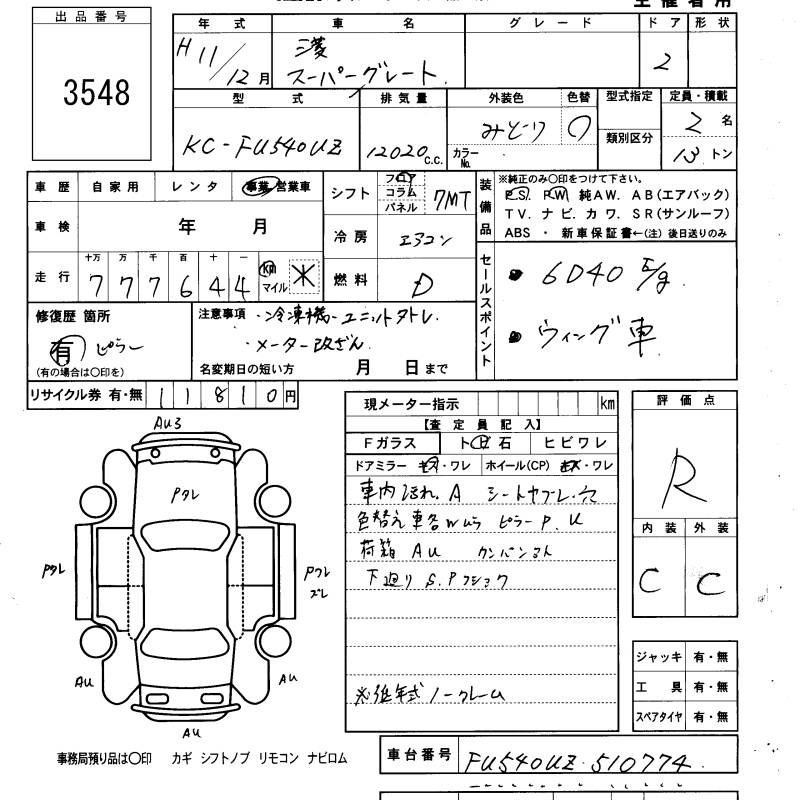 主催者用
出品番号
3548
年式 車名 グレード ドア 形状
H11/12月 三菱 スーパーグレート. 2
型式 排気量 外装色 色替 型式指定 定員・積載
KC-FU540UZ 12020c.c. みどり カラーNo. 類別区分 2名
13トン
車歴 自家用 レンタ 事業 営業車
車検 年 月
走行 十万 万 千 百 十 一 km マイル
7 7 7 6 4 4
シフト フロア コラム パネル 7MT
冷房 エアコン
燃料 D
装備品 ※純正のみ〇印をつけて下さい。
P.S. P.W. 純AW. AB(エアバック)
TV. ナビ. カワ. SR(サンルーフ)
ABS ・ 新車保証書←(注) 後日送りのみ
セールスポイント
・6D40 E/g
・ウィング車
修復歴 箇所
有 ピラー
(有の場合は〇印を)
注意事項 ・冷凍機-ユニットクトレ
・メーター改ざん
名変期日の短い方 月 日まで
リサイクル券 有・無 11810円
現メーター指示 km
【査定員記入】
Fガラス ト ビ 石 ヒビワレ
ドアミラー キズ・ワレ ホイール(CP) キズ・ワレ
車内ヨゴレ. A シートヤブレ・穴
色替え 車名 W ピラー P. U
荷箱 AU カンバン
下廻り S.P フショク
※低年式ノークレーム
評価点
R
内装 外装
C C
ジャッキ 有・無
工具 有・無
スペアタイヤ 有・無
AU3
Pクレ
Pクレ
Pクレ
ズレ
AU
AU
AU
事務局預り品は〇印 カギ シフトノブ リモコン ナビロム
車台番号 FU540UZ-510774